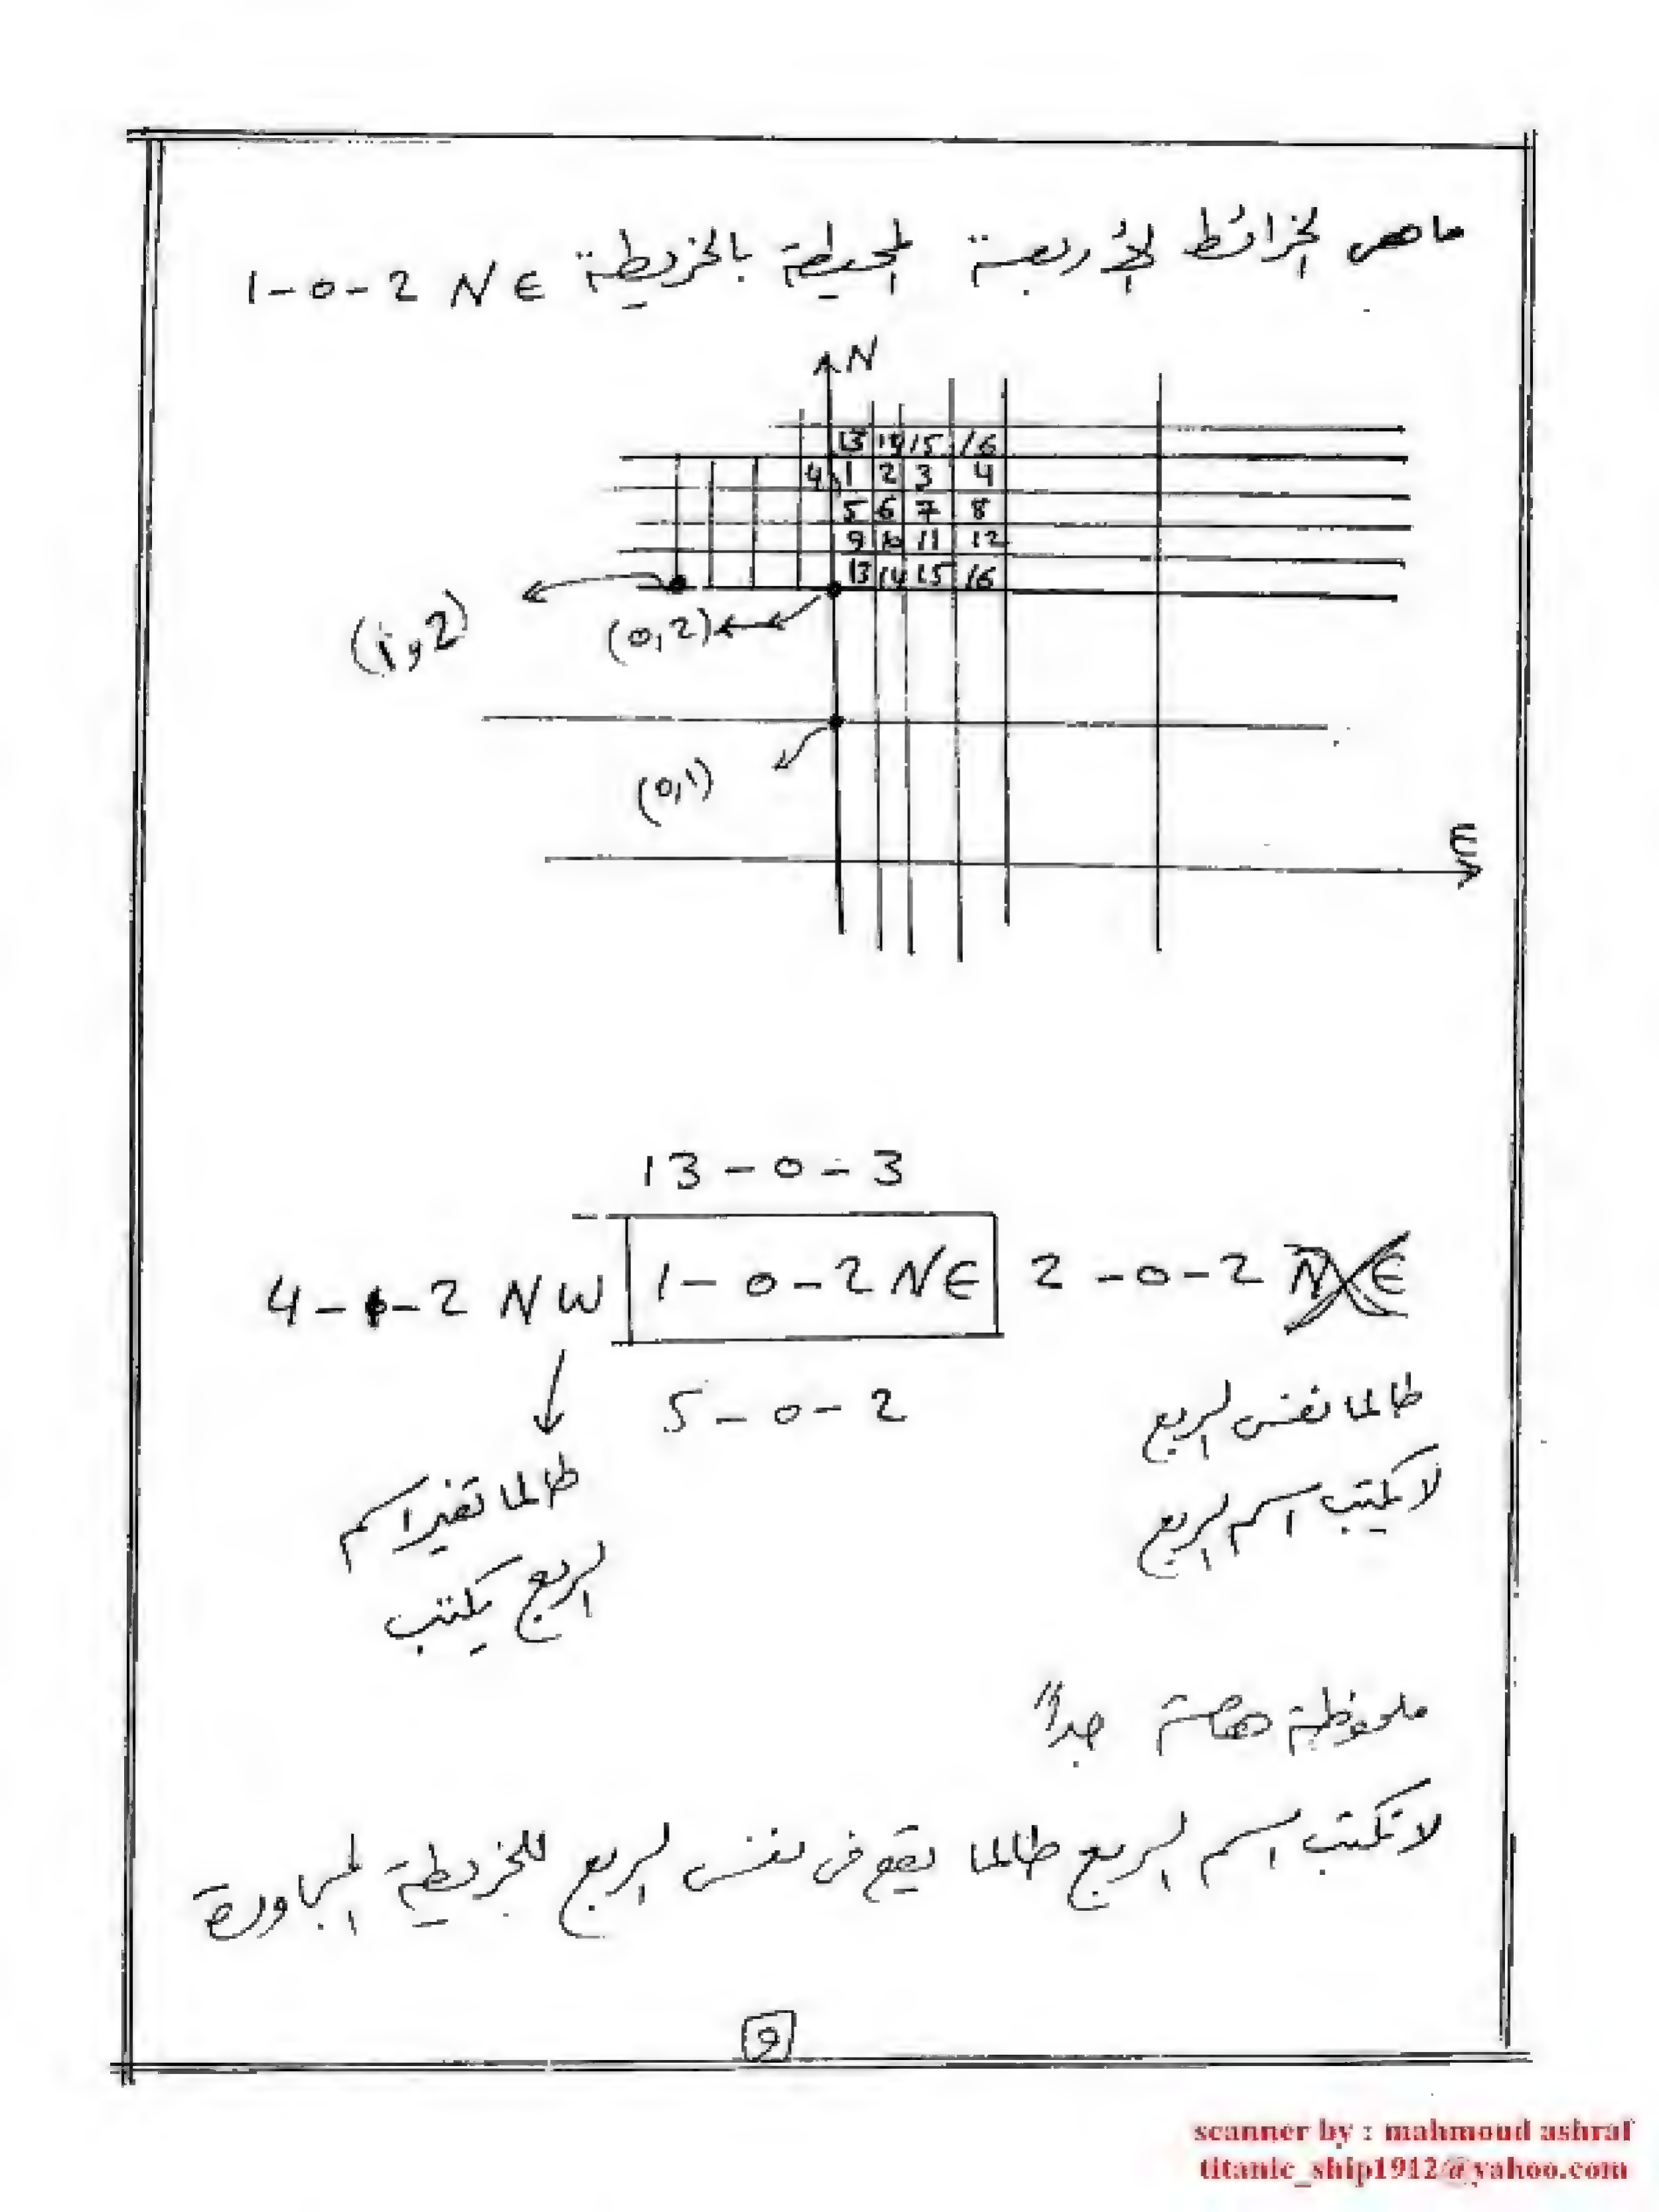 ما هى الخرائط الأربعة المحيطة بالخريطة 1-0-2 NE
N
13 14 15 16
4 1 2 3 4
5 6 7 8
9 10 11 12
13 14 15 16
(1,2)
(0,2)
(0,1)
E
13-0-3
4-1-2 NW 1-0-2 NE 2-0-2
5-0-2
طالما نفس الربع
لا يكتب اسم الربع
طالما تغير اسم
الربع يكتب
ملحوظة هامة جداً
لا تكتب اسم الربع طالما يقع فى نفس الربع للخريطة المجاورة
9
scanner by : mahmoud ashraf
titanic_ship1912@yahoo.com